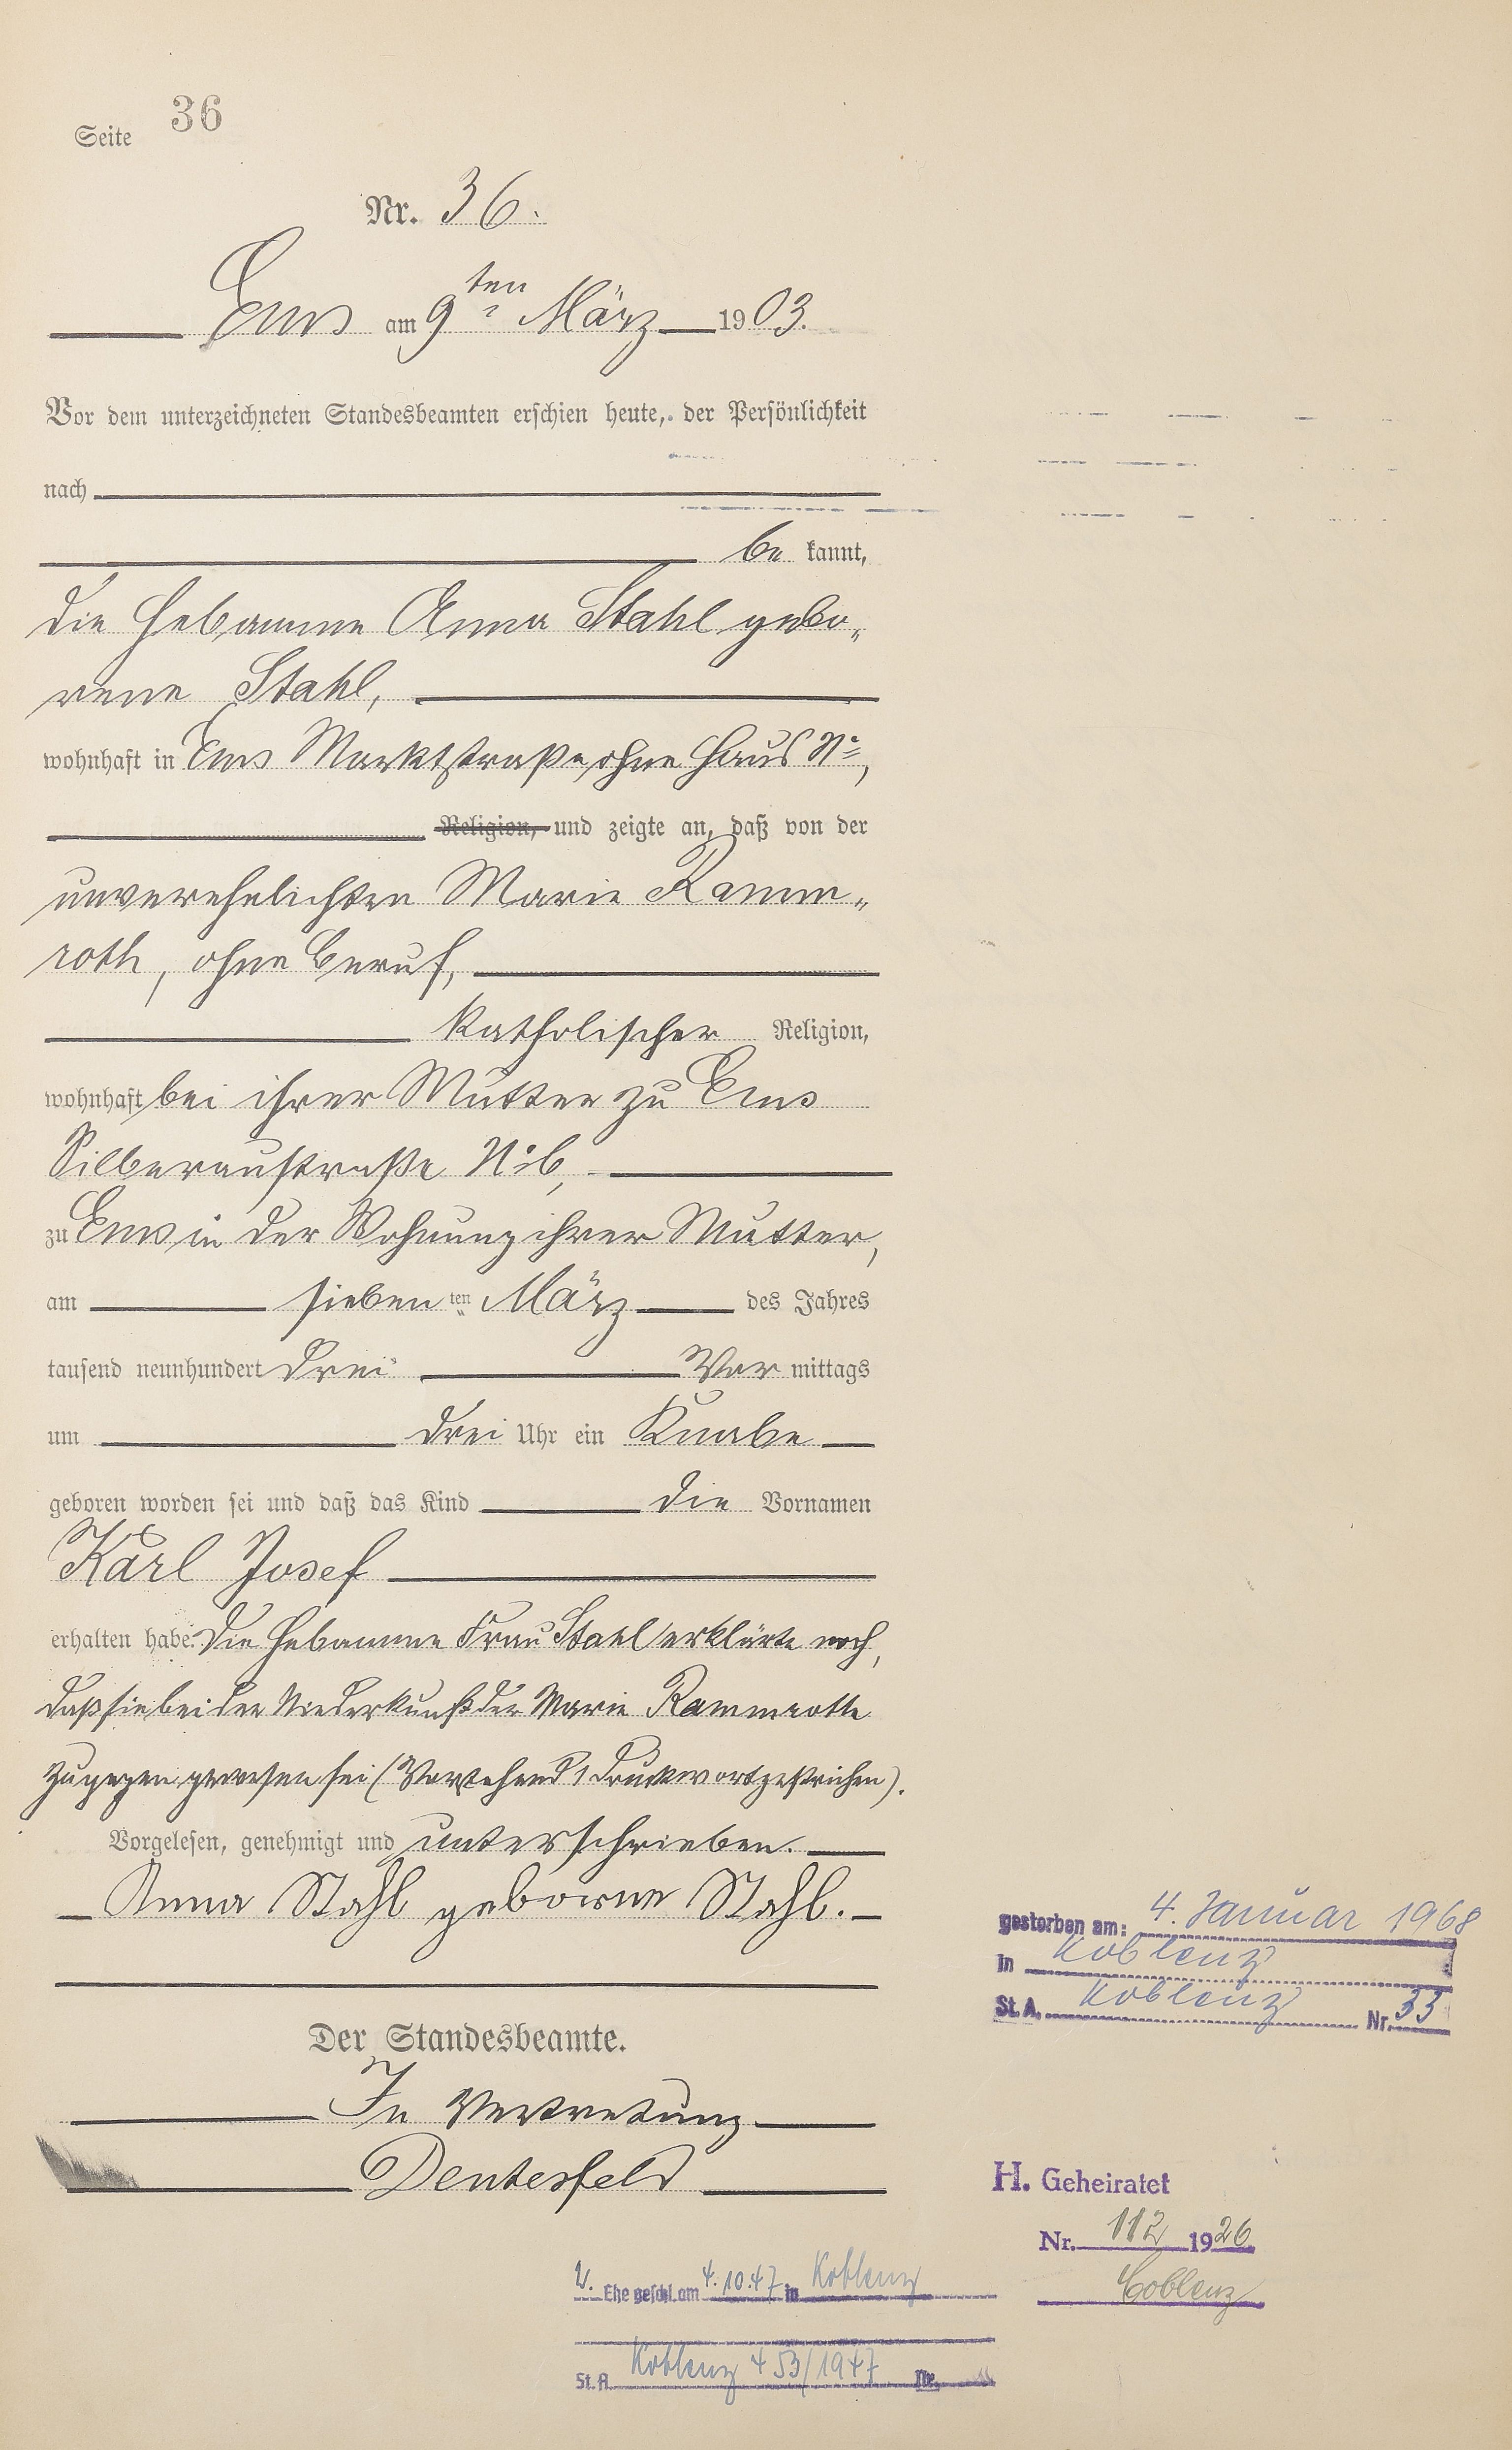 Seite 36
Nr. 36.
Ems am 9ten März 1903.
Vor dem unterzeichneten Standesbeamten erschien heute, der Persönlichkeit
nach
be kannt,
die Hebamme Anna Stahl gebo„
rene Stahl,
wohnhaft in Ems Marktstraße ohne Haus No,
Religion, und zeigte an, daß von der
unverehelichten Marie Ramm„
roth, ohne Beruf,
katholischer Religion,
wohnhaft bei ihrer Mutter zu Ems
Silberaustraße No 6,
zu Ems in der Wohnung ihrer Mutter,
am siebenten März des Jahres
tausend neunhundert drei Vor mittags
um drei Uhr ein Knabe
geboren worden sei und daß das Kind die Vornamen
Karl Josef
erhalten habe. Die Hebamme Frau Stahl erklärte noch,
daß sie bei der Niederkunft der Marie Rammroth
zugegen gewesen sei (Vorstehend 1 Druckwort gestrichen).
Vorgelesen, genehmigt und unterschrieben.
Anna Stahl geborne Stahl.
Der Standesbeamte.
In Vertretung
gestorben am: 4. Januar 1968
in Koblenz
St. A. Koblenz Nr. 33
H. Geheiratet
Nr. 112 1926
Coblenz
Ehe geschl. am 4.10.47 in Koblenz
St. A. Koblenz 453/1947 Nr.